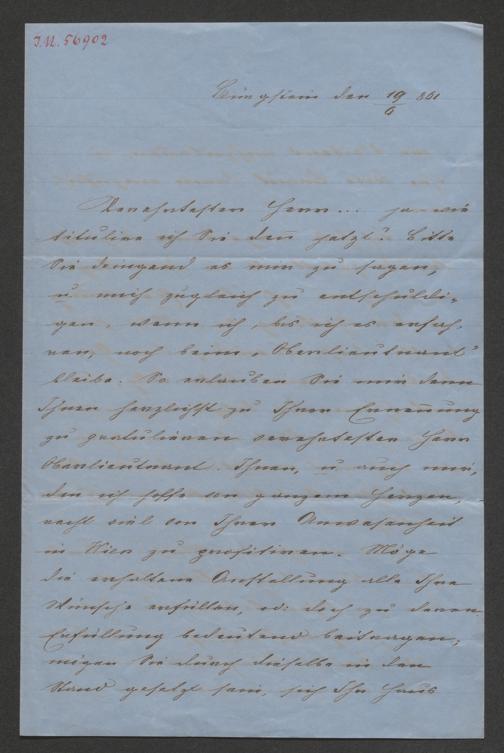 I.N. 56902
den 19/6 861
Verehrtester Herr... ja wie
titulire ich Sie den̄ jetzt? Bitte
Sie dringend es mir zu sagen,
u. mich zugleich zu entschuldi-
gen, wenn ich, bis ich es erfah-
ren, noch beim „Oberlieutnant"
bleibe. So erlauben Sie mir denn
Ihnen herzlichst zu Ihrer Ernen̄ung
zu gratuliren verehrtester Herr
Oberlieutnant. Ihnen, u. auch mir,
den ich hoffe von ganzem Herzen,
recht viel von Ihrer Anwesenheit
in Wien zu profitiren. Möge
die erhaltene Anstellung alle Ihre
Wünsche erfüllen, od: doch zu deren
Erfüllung bedeutend beitragen,
mögen Sie durch dieselbe in den
Stand gesetzt sein, sich Ihr Haus